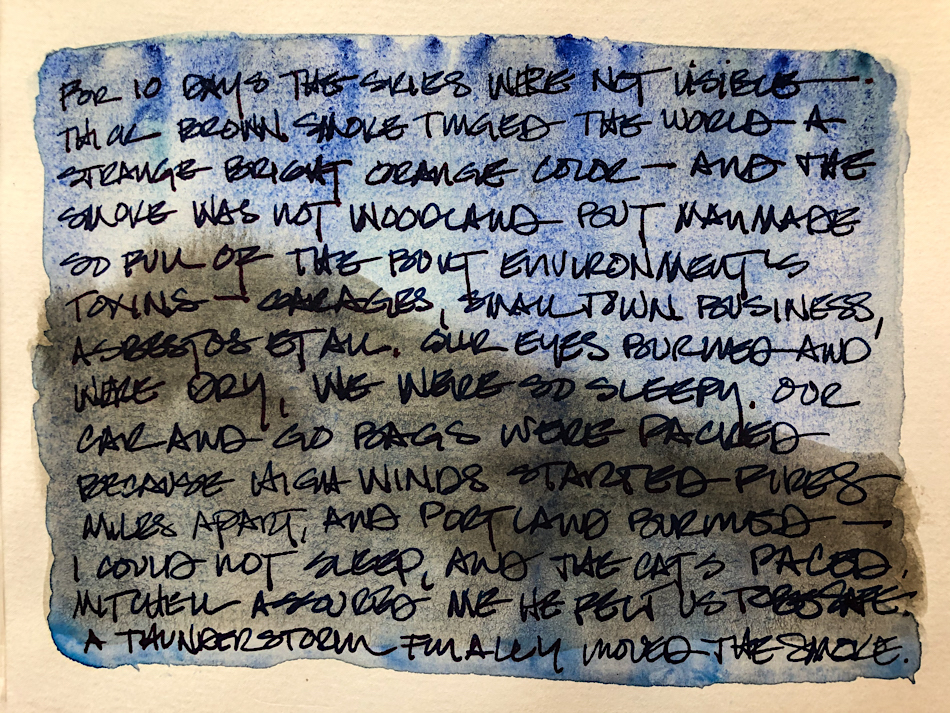 FOR 10 DAYS THE SKIES WERE NOT VISIBLE —
THICK BROWN SMOKE TINGED THE WORLD A
STRANGE BRIGHT ORANGE COLOR — AND THE
SMOKE WAS NOT WOODLAND BUT MANMADE
SO FULL OF THE BUILT ENVIRONMENT'S
TOXINS — GARAGES, SMALL TOWN BUSINESS,
ASBESTOS ET ALL. OUR EYES BURNED AND
WERE DRY, WE WERE SO SLEEPY. OUR
CAR AND GO BAGS WERE PACKED
BECAUSE HIGH WINDS STARTED FIRES
MILES APART, AND PORTLAND BURNED —
I COULD NOT SLEEP, AND THE CATS PACED.
MITCHELL ASSURED ME HE FELT US TO BE SAFE.
A THUNDERSTORM FINALLY MOVED THE SMOKE.